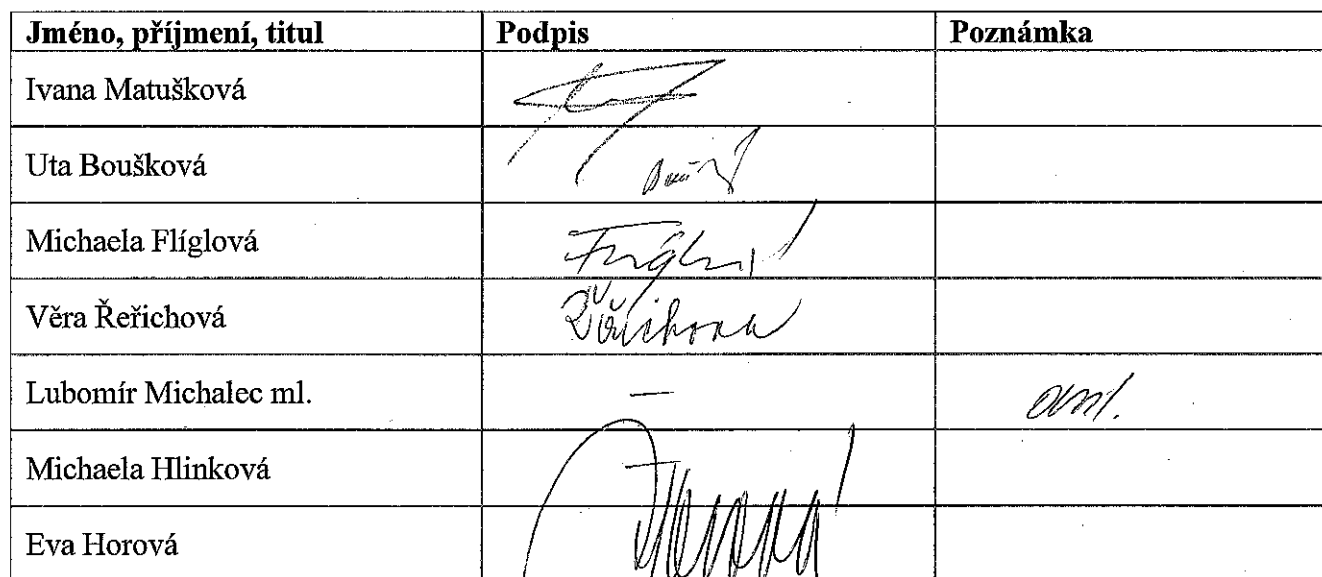 Jméno, příjmení, titul Podpis Poznámka
Ivana Matušková
Uta Boušková
Michaela Flíglová
Věra Řeřichová Řeřichová
Lubomír Michalec ml. —
Michaela Hlinková
Eva Horová